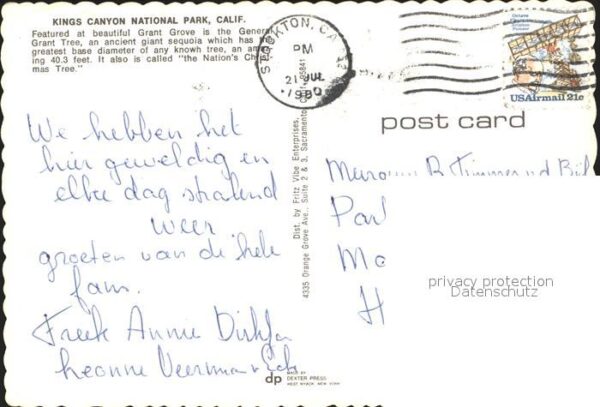 KINGS CANYON NATIONAL PARK, CALIF.
Featured at beautiful Grant Grove is the General
Grant Tree, an ancient giant sequoia which has
greatest base diameter of any known tree, an
ing 40.3 feet. It also is called "the Nation's
mas Tree."
STOCKTON, CA
PM
21 JUL
1980
USAirmail 21c
post card
We hebben het
hier geweldig en
elke dag stralend
weer
groeten van de hele
fam.
Freek Annie
Leonne Veerman
Dist. by Fritz Vibe Enterprises,
4335 Orange Grove Ave, Suite 2 & 3, Sacramento, Calif. 95841
privacy protection
Datenschutz
dp
MADE BY
DEXTER PRESS
WEST NYACK, NEW YORK